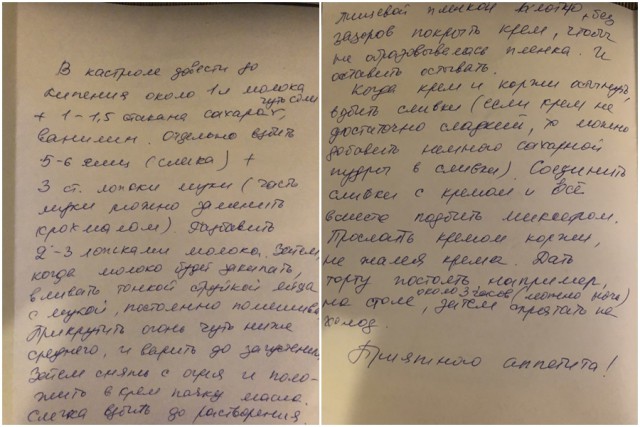 В кастрюле довести до
кипения около 1 л молока
+ 1-1,5 стакана сахара, чуть соли
ванилин. Отдельно взбить
5-6 яиц (слегка) +
3 ст. ложки муки (часть
муки можно заменить
крохмалом). Добавить
2-3 ложками молока. Затем,
когда молоко будет закипать,
вливать тонкой струйкой яйца
с мукой, постоянно помешивая.
Прикрутить огонь чуть ниже
среднего, и варить до загустения.
Затем снять с огня и поло-
жить в крем пачку масла.
Слегка взбить до растворения.
пищевой пленкой вплотную, без
зазоров покрыть крем, чтобы
не образовывалась пленка. И
оставить остывать.
Когда крем и коржи остынут,
взбить сливки (если крем не
достаточно сладкий, то можно
добавить немного сахарной
пудры в сливки). Соединить
сливки с кремом и всё
вместе подбить миксером.
Прослоить кремом коржи,
не жалея крема. Дать
торту постоять, например,
на столе, около 3 часов (можно ночь)
затем спрятать на
холод.
Приятного аппетита!